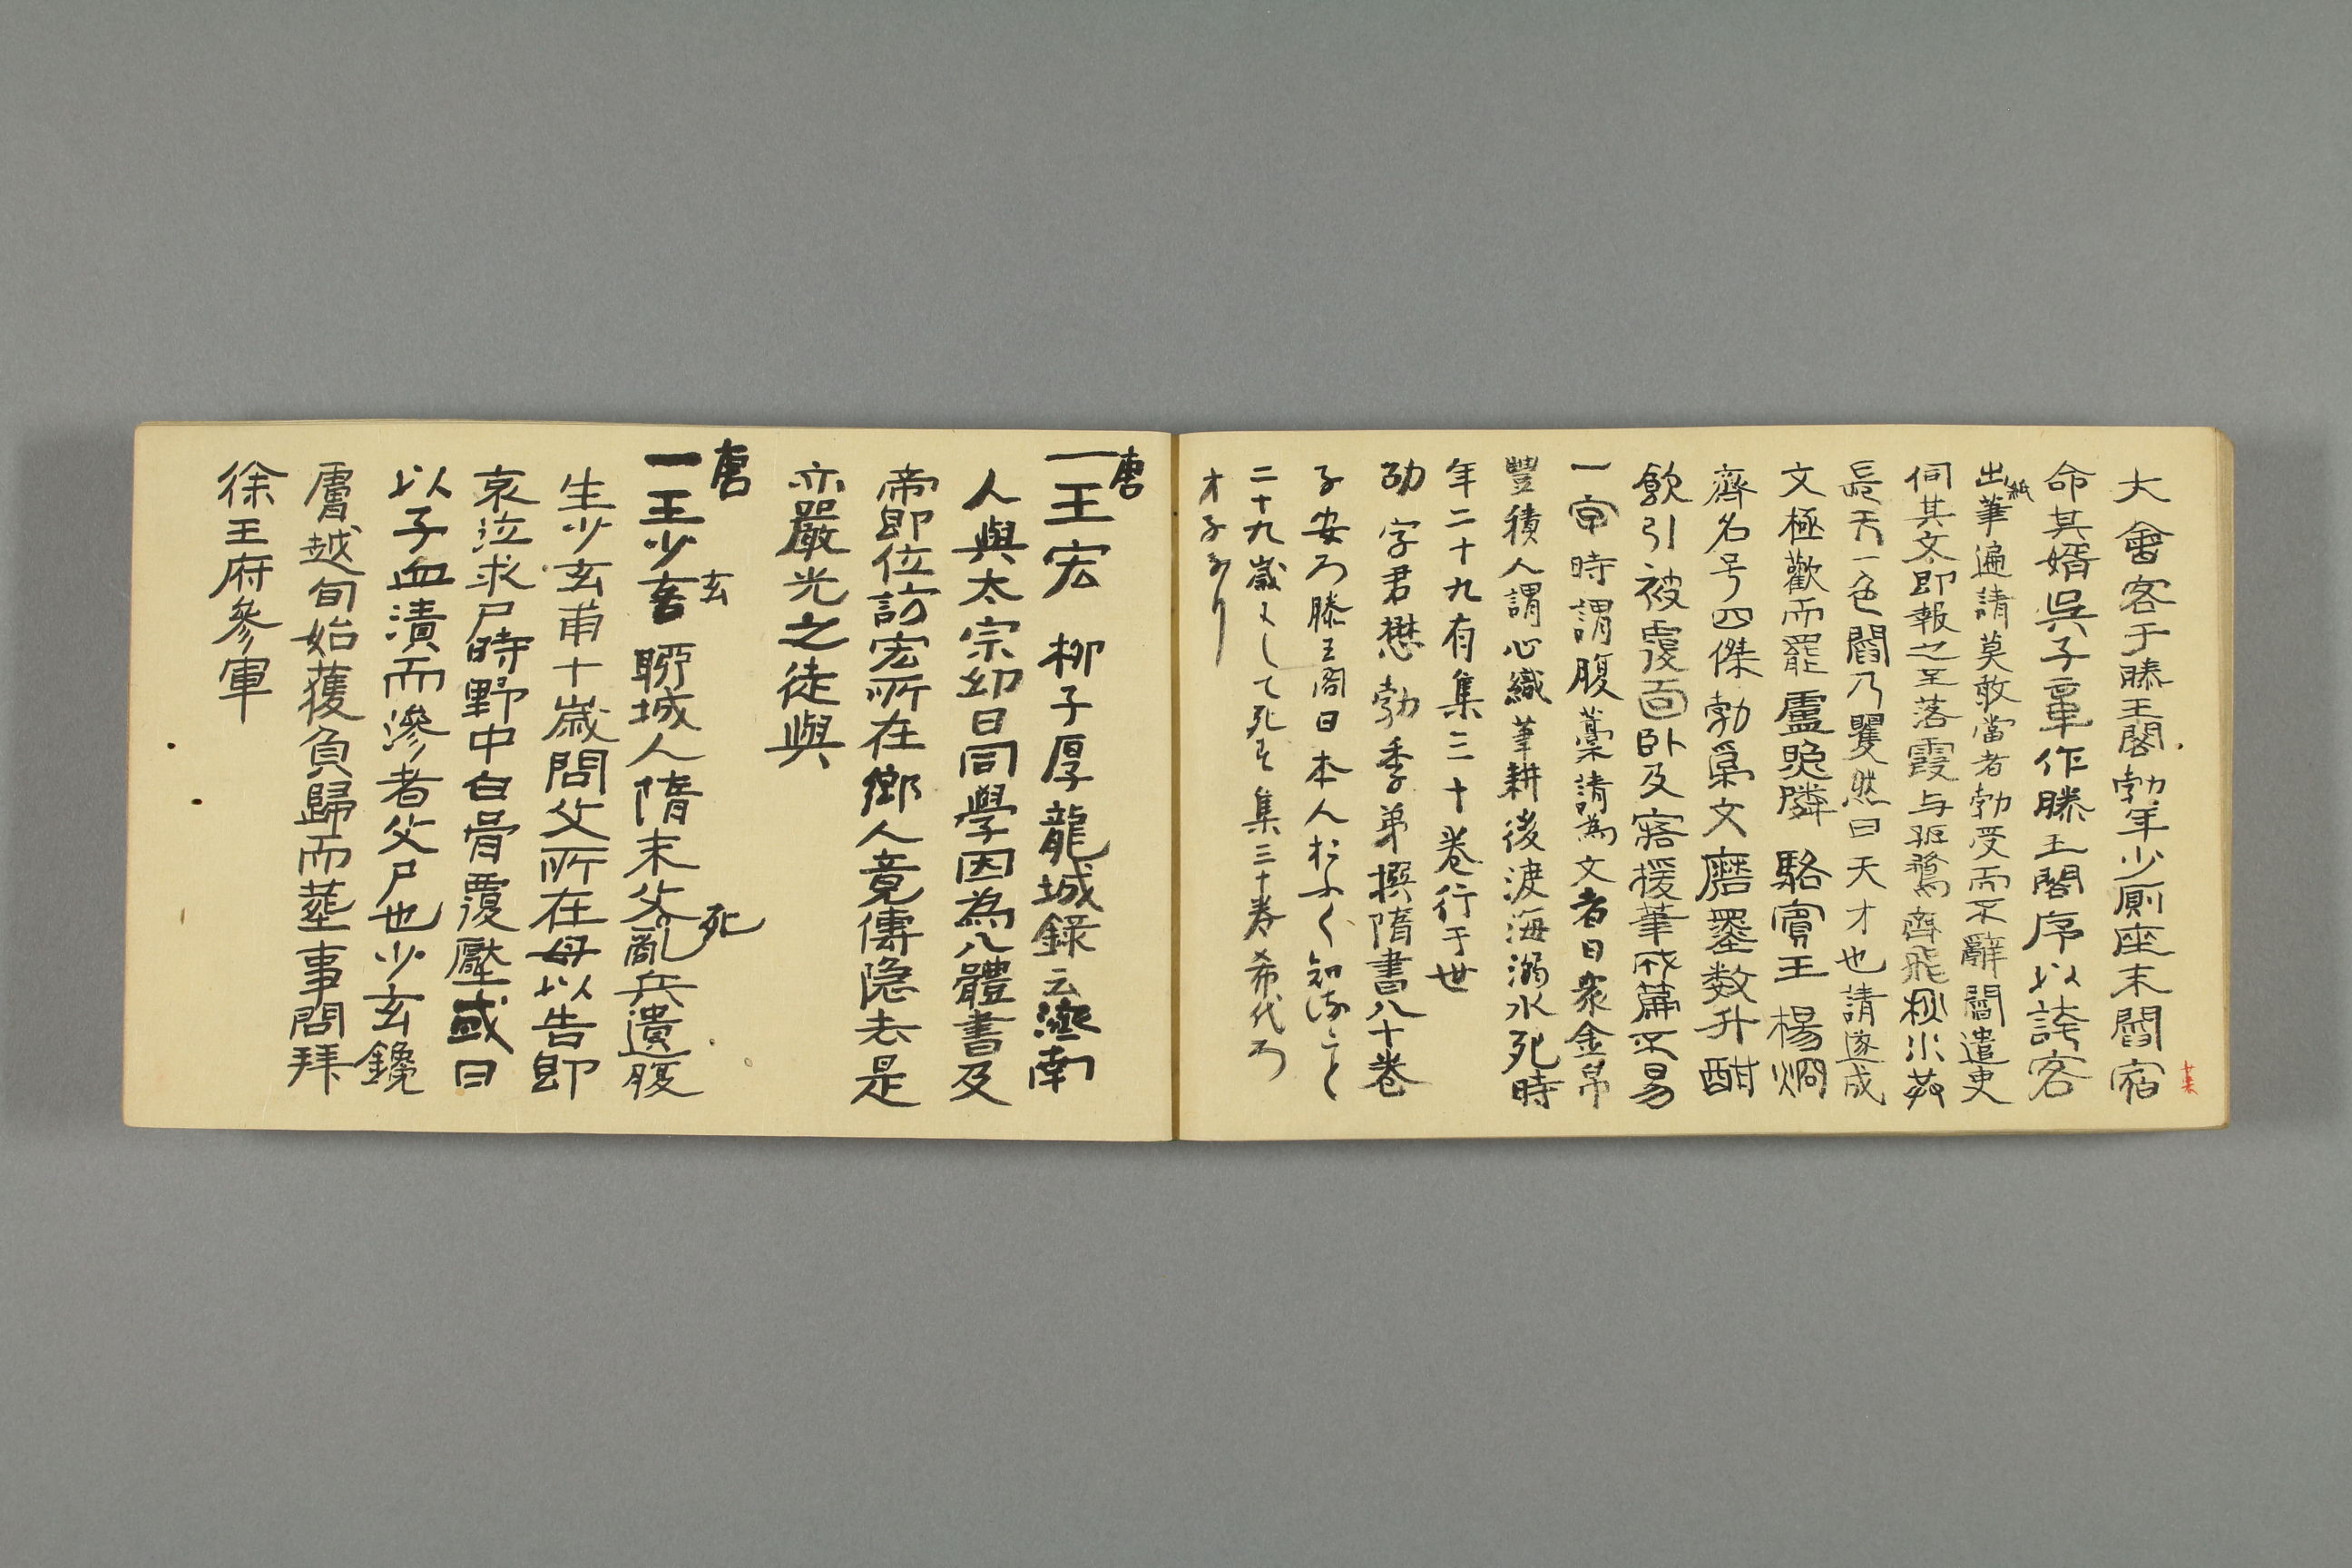 大會客于滕王閣勃年少厠座末閻宿
命其婿吳子章作滕王閣序以誇客
出紙筆遍請莫敢當者勃受而不辭閻遣吏
伺其文即報之至落霞与孤鶩齊飛秋水共
長天一色閻乃矍然曰天才也請遂成
文極歡而罷盧照隣 駱賓王 楊炯
齊名号四傑勃為文磨墨数升酣
飲引被覆面臥及寤援筆成篇不易
一字時謂腹藁請為文者日衆金帛
豐積人謂心織筆耕後渡海溺水死時
年二十九有集三十卷行于世
劼 字君懋 勃季弟 撰隋書八十卷
子安乃滕王閣日本人
二十九歳にして死す 集三十巻 希代乃
才子なり
唐
一王宏 柳子厚龍城錄云濟南
人與太宗幼日同學因為八體書及
帝即位訪宏所在鄉人竟傳隐去是
亦嚴光之徒與
唐
一王少玄 聊城人隋末父死亂兵遺腹
生少玄甫十歲問父所在母以告即
哀泣求尸時野中白骨覆壓或曰
以子血漬而滲者父尸也少玄鑱
膚越旬始獲負歸而葬事聞拜
徐王府參軍